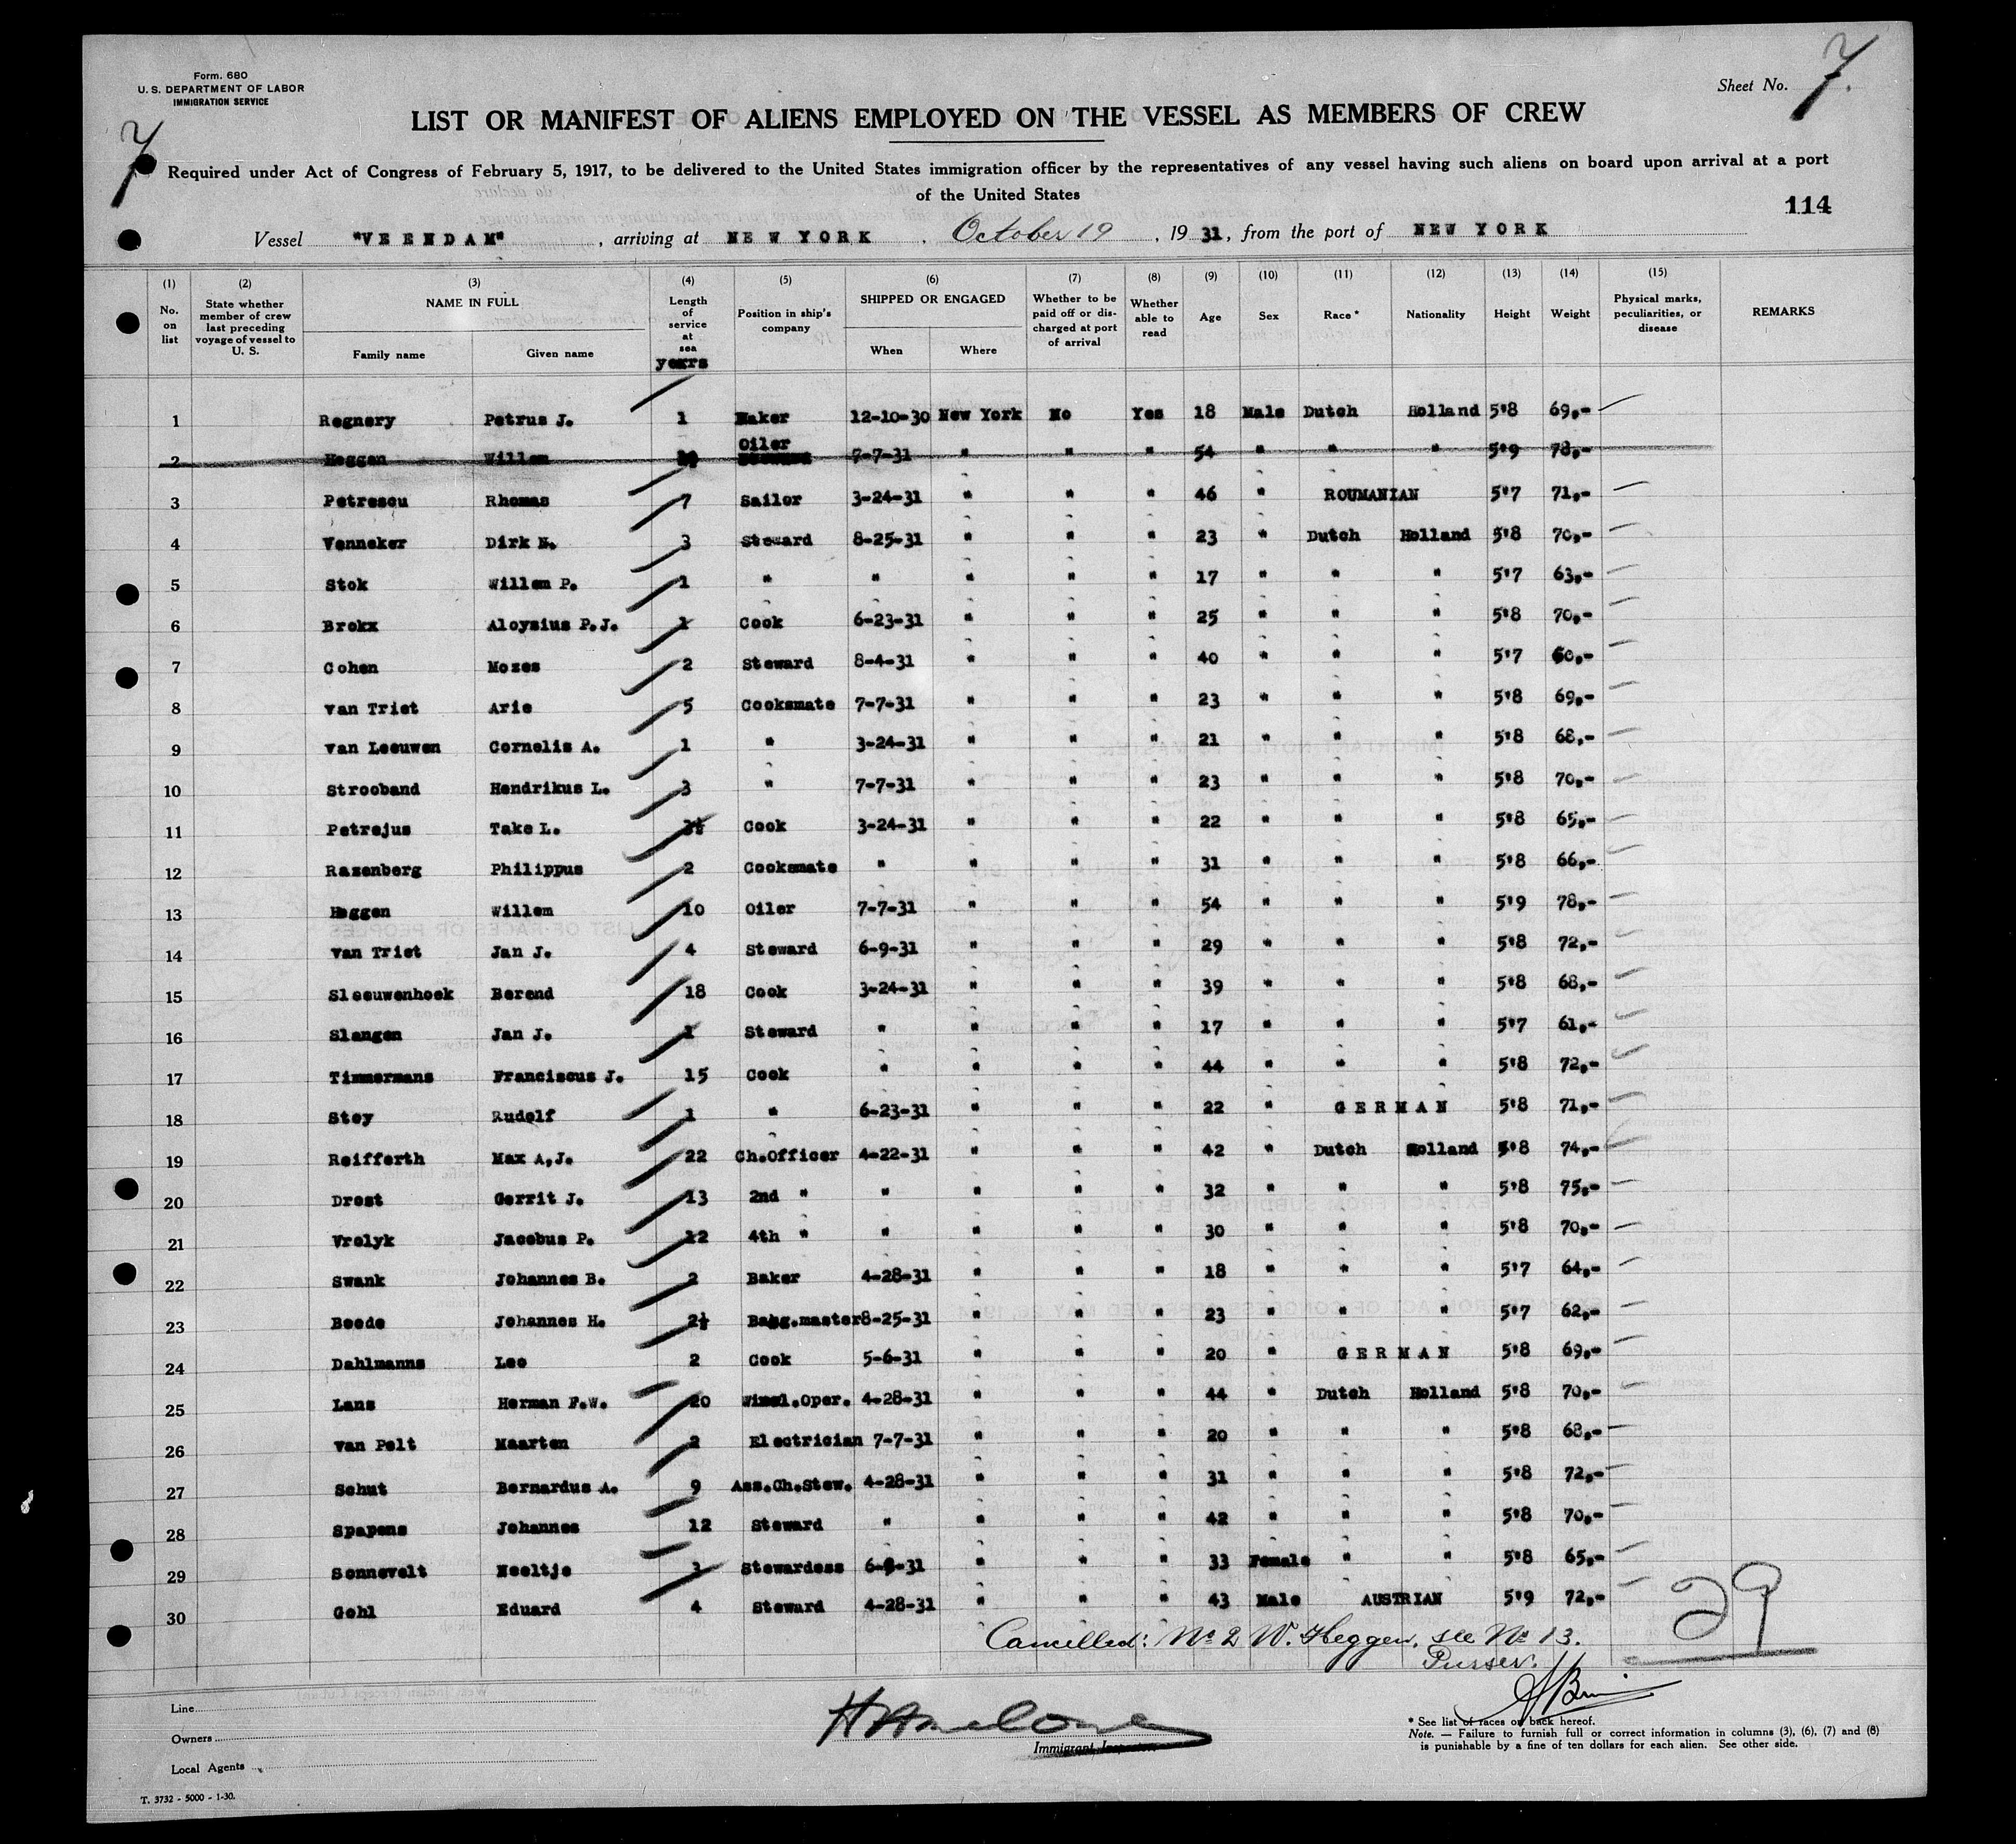 Form. 680
U. S. DEPARTMENT OF LABOR
IMMIGRATION SERVICE
Sheet No. 7.
7
LIST OR MANIFEST OF ALIENS EMPLOYED ON THE VESSEL AS MEMBERS OF CREW
Required under Act of Congress of February 5, 1917, to be delivered to the United States immigration officer by the representatives of any vessel having such aliens on board upon arrival at a port
of the United States
114
Vessel "VEENDAM", arriving at NEW YORK, October 19, 1931, from the port of NEW YORK
(1) (2) (3) (4) (5) (6) (7) (8) (9) (10) (11) (12) (13) (14) (15)
No. on list State whether member of crew last preceding voyage of vessel to U. S. NAME IN FULL Family name Given name Length of service at sea years Position in ship's company SHIPPED OR ENGAGED When Where Whether to be paid off or discharged at port of arrival Whether able to read Age Sex Race* Nationality Height Weight Physical marks, peculiarities, or disease REMARKS
1 Regnery Petrus J. 1 Baker 12-10-30 New York No Yes 18 Male Dutch Holland 5'8 69,-
2 Heggen Willem Oiler 7-7-31 " " " 54 " " " 5'9 78,-
3 Petrescu Rhomas 7 Sailor 3-24-31 " " " 46 " ROUMANIAN 5'7 71,-
4 Venneker Dirk N. 3 Steward 8-25-31 " " " 23 " Dutch Holland 5'8 70,-
5 Stok Willem P. 1 " " " " " 17 " " " 5'7 63,-
6 Brokx Aloysius P.J. 1 Cook 6-23-31 " " " 25 " " " 5'8 70,-
7 Cohen Mozes 2 Steward 8-4-31 " " " 40 " " " 5'7 60,-
8 van Triet Arie 5 Cooksmate 7-7-31 " " " 23 " " " 5'8 69,-
9 van Leeuwen Cornelis A. 1 " 3-24-31 " " " 21 " " " 5'8 68,-
10 Strooband Hendrikus L. 3 " 7-7-31 " " " 23 " " " 5'8 70,-
11 Petrejus Take L. Cook 3-24-31 " " " 22 " " " 5'8 65,-
12 Razenberg Philippus 2 Cooksmate " " " " 31 " " " 5'8 66,-
13 Heggen Willem 10 Oiler 7-7-31 " " " 54 " " " 5'9 78,-
14 van Triet Jan J. 4 Steward 6-9-31 " " " 29 " " " 5'8 72,-
15 Sleeuwenhoek Berend 18 Cook 3-24-31 " " " 39 " " " 5'8 68,-
16 Slangen Jan J. 1 Steward " " " " 17 " " " 5'7 61,-
17 Timmermans Franciscus J. 15 Cook " " " " 44 " " " 5'8 72,-
18 Stey Rudolf 1 " 6-23-31 " " " 22 " GERMAN 5'8 71,-
19 Reifferth Max A,J. 22 Ch.Officer 4-22-31 " " " 42 " Dutch Holland 5'8 74,-
20 Drost Gerrit J. 13 2nd " " " " " 32 " " " 5'8 75,-
21 Vrolyk Jacobus P. 12 4th " " " " " 30 " " " 5'8 70,-
22 Swank Johannes B. 2 Baker 4-28-31 " " " 18 " " " 5'7 64,-
23 Beede Johannes H. 2½ Bagg.master 8-25-31 " " " 23 " " " 5'7 62,-
24 Dahlmanns Leo 2 Cook 5-6-31 " " " 20 " GERMAN 5'8 69,-
25 Lans Herman F.W. 20 Wirel.Oper. 4-28-31 " " " 44 " Dutch Holland 5'8 70,-
26 van Pelt Maarten 2 Electrician 7-7-31 " " " 20 " " " 5'8 68,-
27 Schut Bernardus A. 9 Ass.Ch.Stew. 4-28-31 " " " 31 " " " 5'8 72,-
28 Spapens Johannes 12 Steward " " " " 42 " " " 5'8 70,-
29 Sonnevelt Neeltje 3 Stewardess 6-9-31 " " " 33 Female " " 5'8 65,-
30 Gohl Eduard 4 Steward 4-28-31 " " " 43 Male AUSTRIAN 5'9 72,-
29
Cancelled: No 2 W. Heggen, see No 13.
Purser.
Line
Owners
Local Agents
Immigrant Inspector
* See list of races on back hereof.
Note. — Failure to furnish full or correct information in columns (3), (6), (7) and (8)
is punishable by a fine of ten dollars for each alien. See other side.
T. 3732 - 5000 - 1-30.